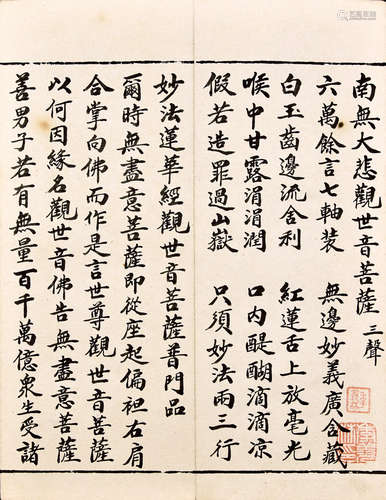 南無大悲觀世音菩薩 三聲
六萬餘言七軸裝 無邊妙義廣含藏
白玉齒邊流舍利 紅蓮舌上放毫光
喉中甘露涓涓潤 口內醍醐滴滴凉
假若造罪過山嶽 只須妙法兩三行
妙法蓮華經觀世音菩薩普門品
爾時無盡意菩薩即從座起偏袒右肩
合掌向佛而作是言世尊觀世音菩薩
以何因緣名觀世音佛告無盡意菩薩
善男子若有無量百千萬億衆生受諸